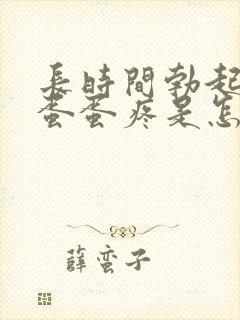 長時間勃起
蛋蛋疼是怎
薛蛮子